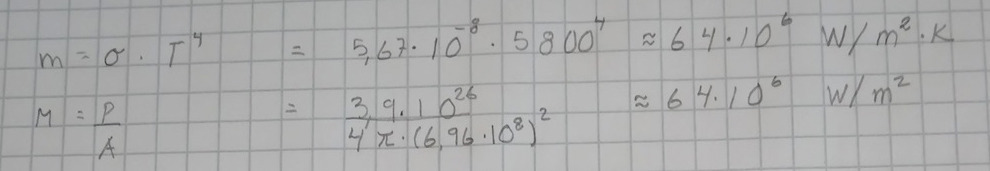 m = σ · T⁴ = 5,67 · 10⁻⁸ · 5800⁴ ≈ 64 · 10⁶ W/m² · K
M = P/A = 3,9 · 10²⁶ / 4π · (6,96 · 10⁸)² ≈ 64 · 10⁶ W/m²